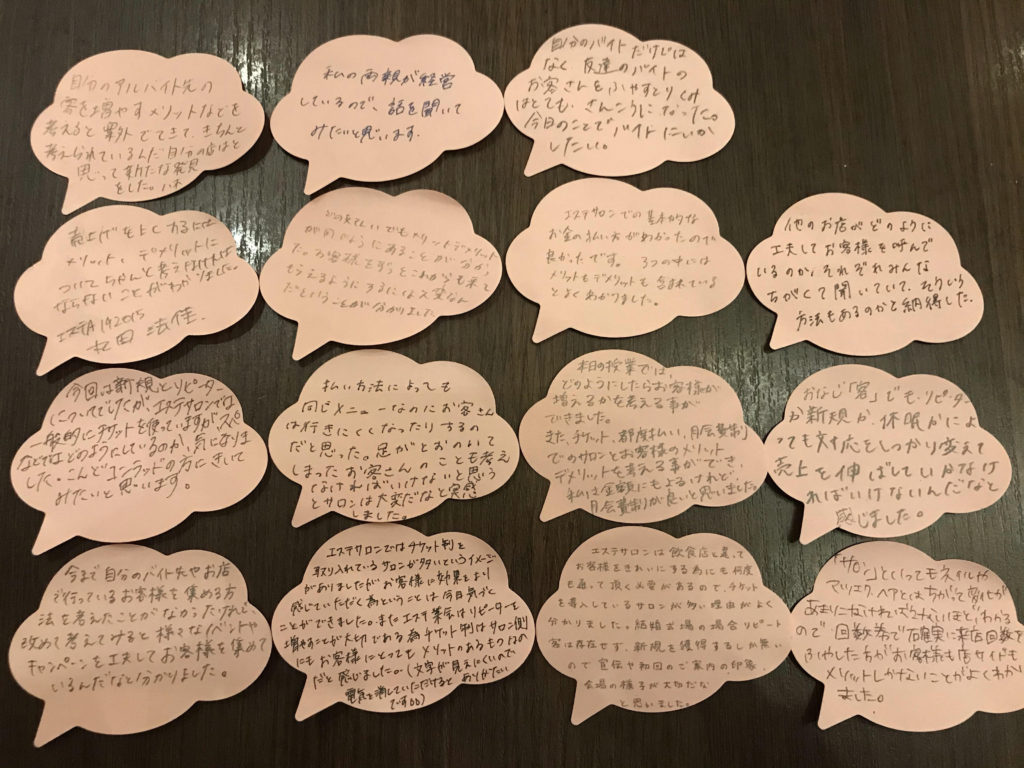 自分のアルバイト先の
客を増やすメリットなどを
考えると案外でてきて、きちんと
考えられているんだ自分の店はと
思って新たな発見
をした。
私の両親が経営
しているので、話を聞いて
みたいと思います。
自分のバイトだけでは
なく友達のバイトの
お客さんをふやすとりくみ
はとても、さんこうになった。
今日のことでバイトにいかし
したい。
売上げをよくするには
メリット、デメリットに
ついてちゃんと考えなければ
ならないことがわかりました。
エステ
どの支払いでもメリットデメリット
が同じようにあることが分かっ
た。お客様をずっとこれからも来て
もらえるようにするには大変なん
だということが分かりました
エステサロンでの基本的な
お金の払い方がわかったので
良かったです。3つの中には
メリットもデメリットも含まれている
とよくわかりました。
他のお店がどのように
工夫してお客様を呼んで
いるのか、それぞれみんな
ちがくて聞いていて、そういう
方法もあるのかと納得した。
今回は新規とリピーター
についてでしたが、エステサロンでは
一般的にチケットを使っていますが、スパ
などではどのようにしているのか、気になりま
した。こんどコンラッドの方にきいて
みたいと思います。
払い方法によっても
同じメニューなのにお客さん
は行きにくくなったりするの
だと思った。足がとおのいて
しまったお客さんのことも考え
なければいけないと思う
とサロンは大変だなと実感
しました。
本日の授業では、
どのようにしたらお客様が
増えるかを考える事が
できました。
また、チケット、都度払い、月会費制
でのサロンとお客様のメリット
デメリットを考える事ができ、
私は金額にもよるけれど、
月会費制が良いと思いました。
おなじ「客」でも、リピーター
か新規か、休眠かによ
っても対応をしっかり変えて
売上を伸ばしていかなけ
ればいけないんだなと
感じました。
今まで自分のバイト先やお店
で行っているお客様を集める方
法を考えたことがなかったけれど、
改めて考えてみると様々なイベントや
キャンペーンを工夫してお客様を集めて
いるんだなと分かりました。
エステサロンではチケット制を
取り入れているサロンが多いというイメージ
がありましたがお客様に効果をより
感じていただく為ということは今日気づく
ことができました。またエステ業界はリピーターを
増やすことが大切である為チケット制はサロン側
にもお客様にとってもメリットのあるものなの
だと感じました。(文字が見えにくいので
電気を消していただけるとありがたい
です
エステサロンは飲食店と違って
お客様をきれいにする為にも何度
も通って頂く必要があるので、チケット
を導入しているサロンが多い理由がよく
分かりました。結婚式場の場合リピート
客は存在せず、新規を獲得するしか無い
ので宣伝や初回のご案内の印象、
会場の様子が大切だな
と思いました。
「サロン」といってもネイルや
マツエク、ヘアとはちがって変化が
あまりになければいけないほどわかる
ので回数券で確実に来店回数を
ふやした方がお客様も店サイドも
メリットしかないことがよくわかり
ました。